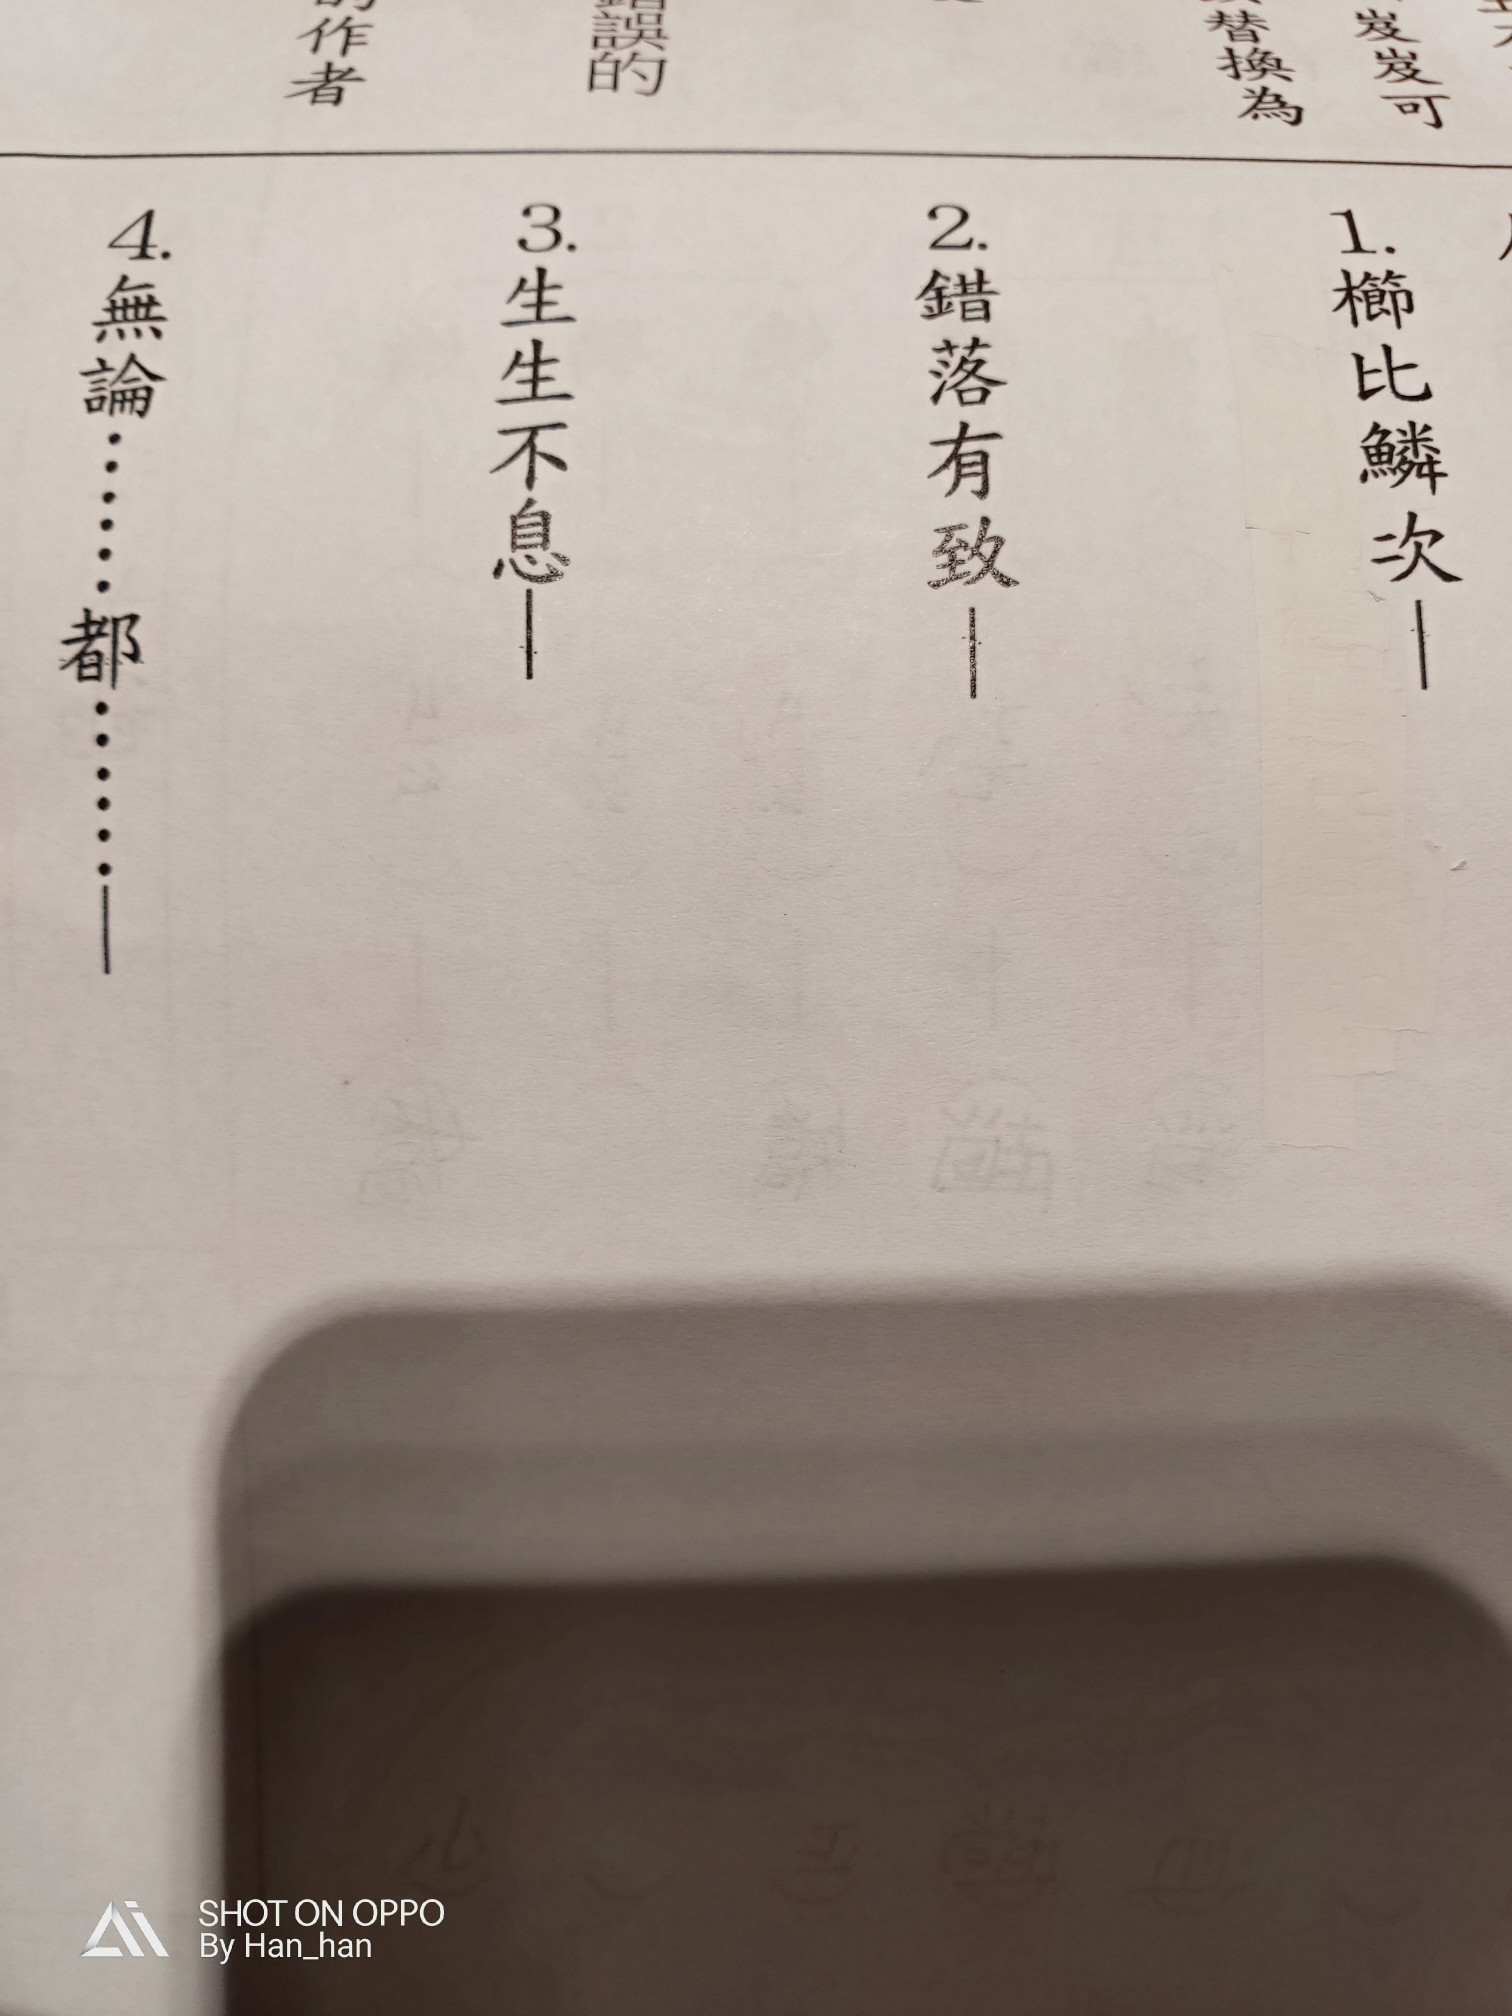 岌岌可
替換為
誤的
作者
1.櫛比鱗次—
2.錯落有致—
3.生生不息—
4.無論……都……—
SHOT ON OPPO
By Han_han